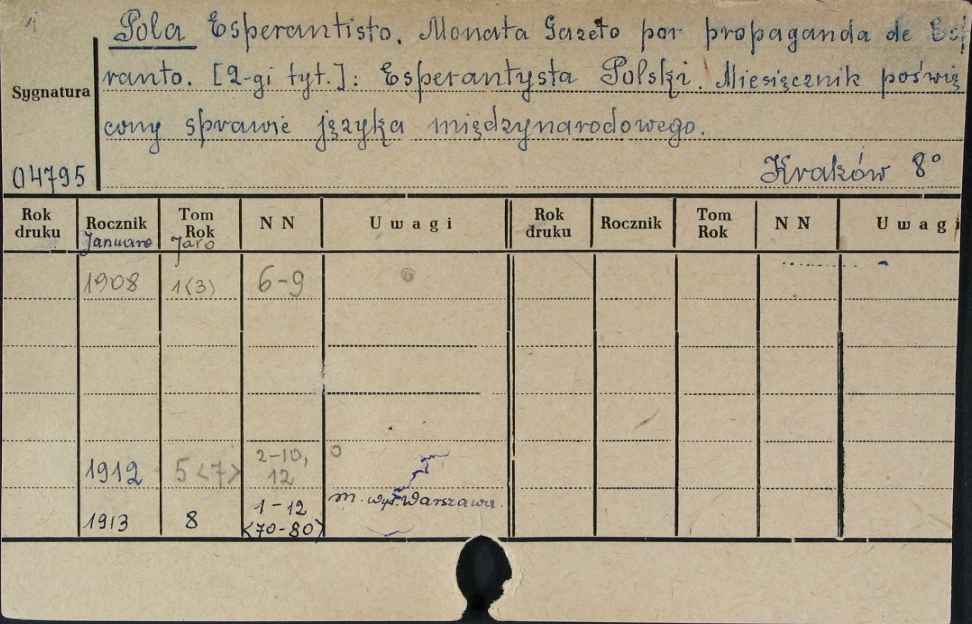 Pola Esperantisto. Monata Gazeto por propaganda de Espe
ranto. [2-gi tyt.]: Esperantysta Polski. Miesięcznik poświę
Sygnatura
cony sprawie języka międzynarodowego.
04795 Kraków 8°
Rok druku Rocznik Tom Rok NN Uwagi Rok druku Rocznik Tom Rok NN Uwagi
Januaro Jaro
1908 1(3) 6-9
1912 5<7> 2-10, 12
m. wyd. Warszawa.
1913 8 1-12 <70-80>